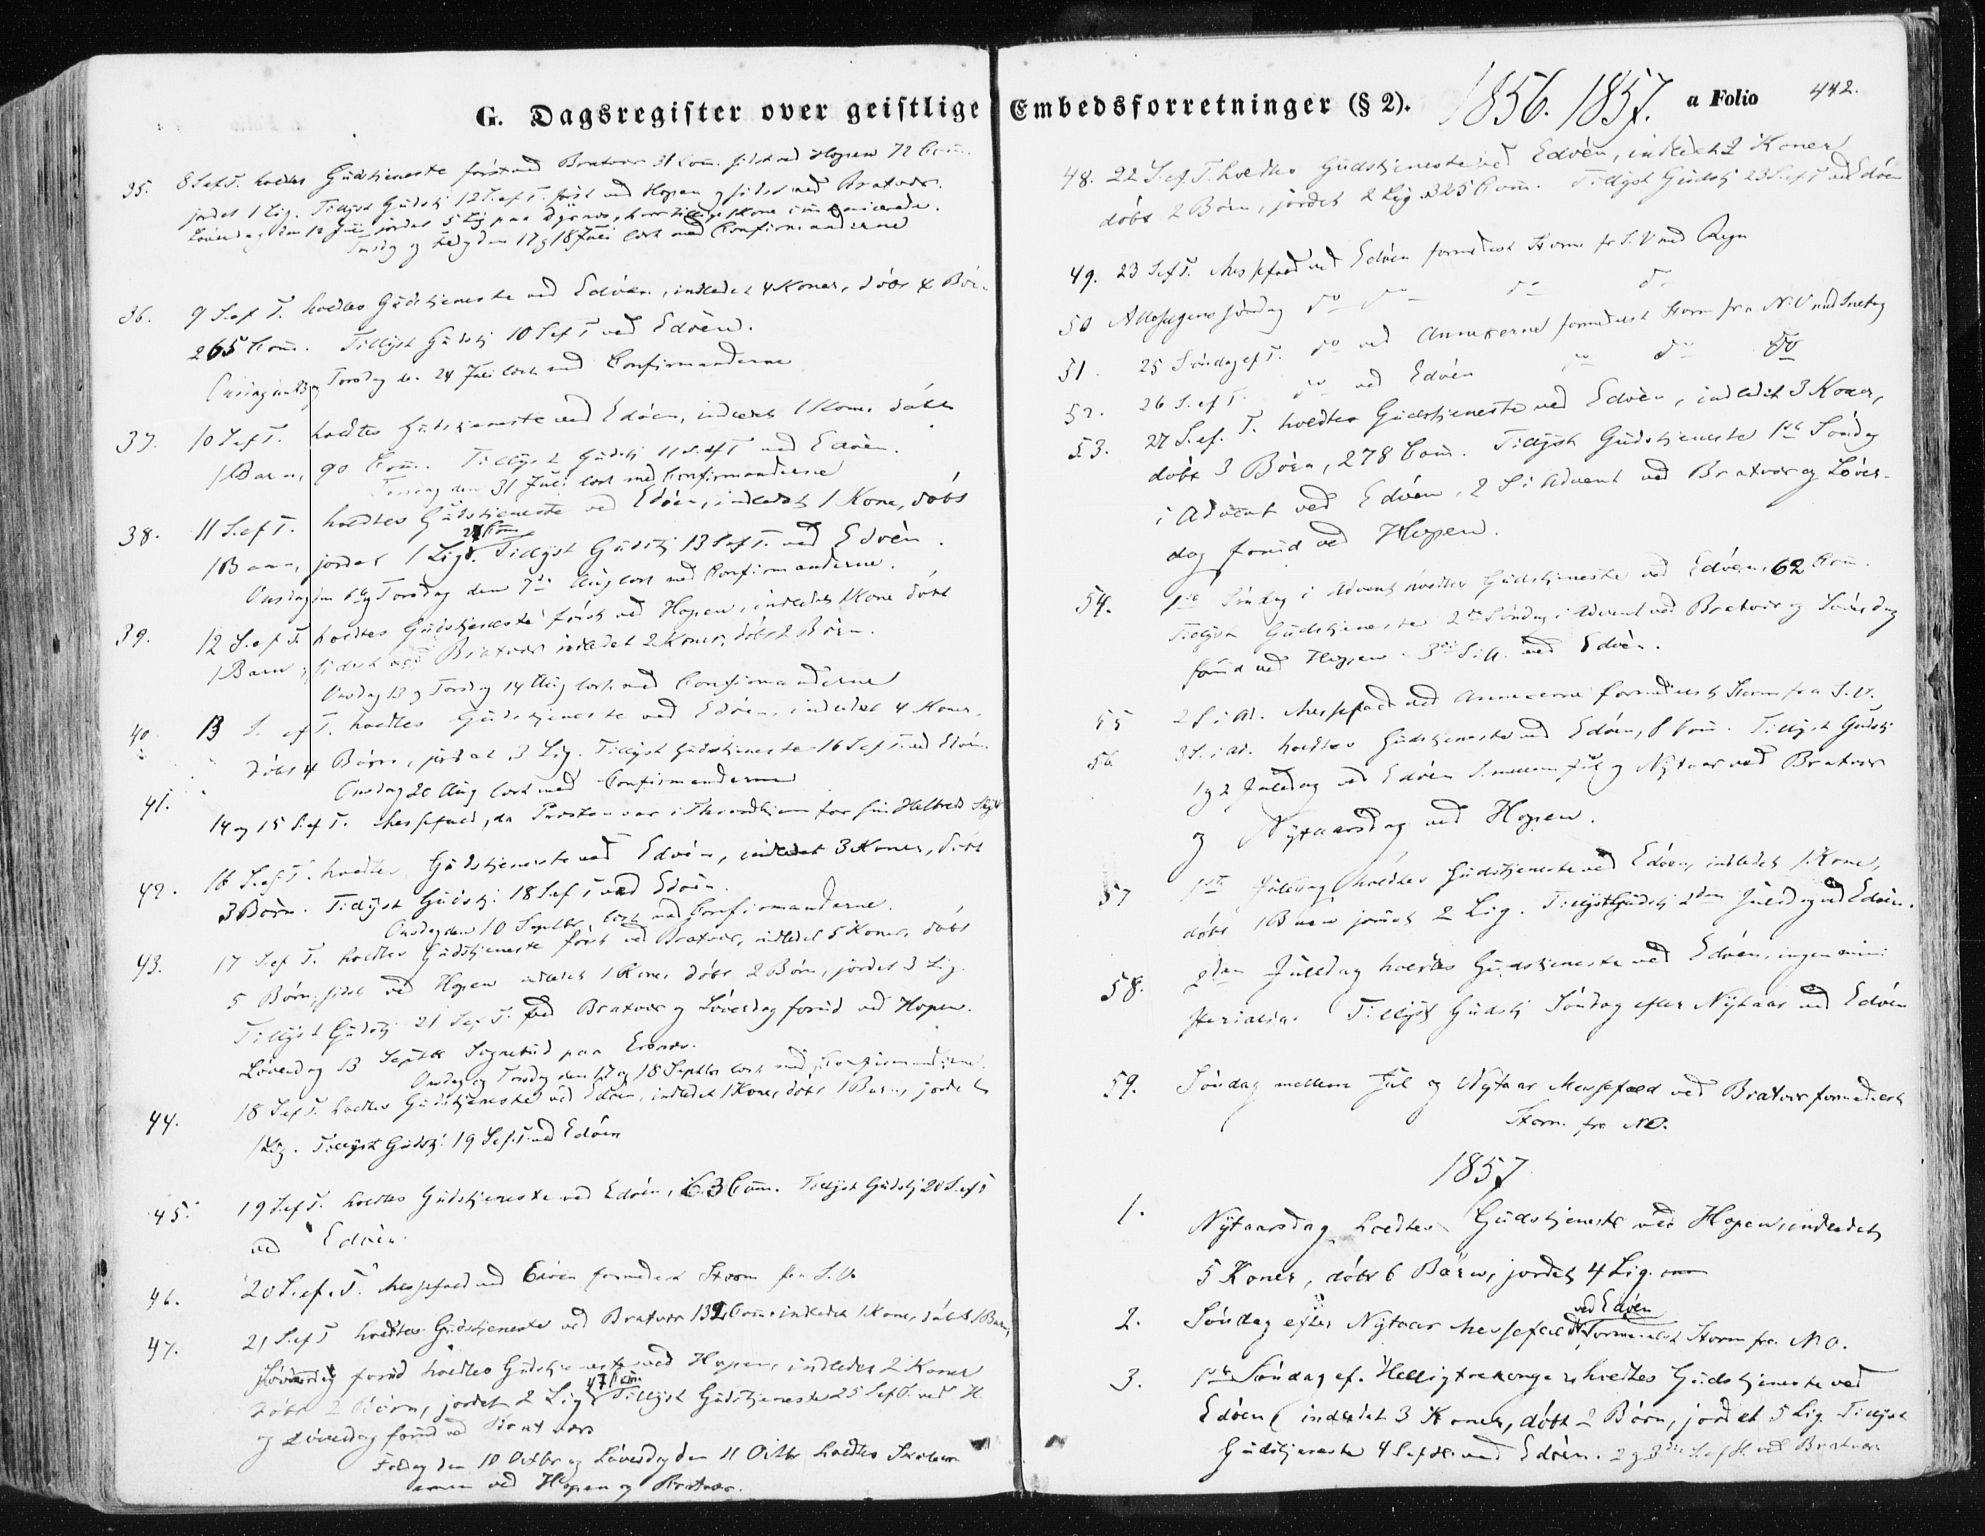 G. Dagsregister over geistlige Embedsforretninger (§ 2). 1856. 1857. a Folio 442.
35. 8 S. ef T. holdtes Gudstjeneste først ved Bratvær 31 Com. sidst ved Hopen 72 Com.
jordet 1 Lig. Tillyst Gudstj 12 S. ef T. først ved Hopen og sidst ved Bratvær.
Løverdag den 12 Juli jordet 5 Lig paa
Torsdag og Fredag den 17 og 18 Juli læst med Confirmanderne
36. 9 S. ef T. holdtes Gudstjeneste ved Edöen, indledet 4 Koner, döbt 4 Börn
265 Com. Tillyst Gudstj 10 S ef T ved Edöen.
Onsdag og Torsdag den 24 Juli læst med Confirmanderne
37. 10 S. ef T. holdtes Gudstjeneste ved Edöen, indledet 1 Kone, döbt
1 Barn, 90 Com. Tillyst Gudstj 11 S. ef T ved Edöen.
Torsdag den 31 Juli læst med Confirmanderne
38. 11 S. ef T. holdtes Gudstjeneste ved Edöen, indledet 1 Kone, döbt
1 Barn, jordet 1 Lig. Tillyst Gudstj 13 S ef T. ved Edöen.
Onsdag den 6 og Torsdag den 7de Aug læst med Confirmanderne.
39. 12 S. ef T. holdtes Gudstjeneste først ved Hopen, indledet 1 Kone döbt
1 Barn, sidst ved Bratvær indledet 2 Koner, döbt 2 Börn.
Onsdag 13 og Torsdag 14 Aug læst med Confirmanderne
40. 13 S. ef T. holdtes Gudstjeneste ved Edöen, indledet 4 Koner,
döbt 4 Börn, jordet 3 Lig. Tillyst Gudstjeneste 16 S ef T. ved Edöen.
Onsdag 20 Aug læst med Confirmanderne
41. 14 og 15 S. ef T. Messefald, da Præsten var i Throndhjem for sin Helbreds Skyld
42. 16 S. ef T. holdtes Gudstjeneste ved Edöen, indledet 3 Koner, döbt
3 Börn. Tillyst Gudstj: 18 S ef T ved Edöen.
Onsdag den 10 Septbr læst med Confirmanderne.
43. 17 S. ef T. holdtes Gudstjeneste först ved Bratvær, indledet 5 Koner, döbt
5 Börn, sidst ved Hopen indledet 1 Kone, döbt 2 Börn, jordet 3 Lig.
Tillyst Gudstj 21 S ef T. ved Bratvær og Löverdag forud ved Hopen.
Löverdag 13 Septbr Sognebud paa
Onsdag og Torsdag den 17 og 18 Septbr læst med Confirmanderne.
44. 18 S ef T. holdtes Gudstjeneste ved Edöen, indledet 1 Kone, döbt 1 Barn, jordet
1 Lig. Tillyst Gudstj: 19 S. ef T. ved Edöen
45. 19 S ef T. holdtes Gudstjeneste ved Edöen, 63 Com. Tillyst Gudstj 20 S. ef T
ved Edöen.
46. 20 S. ef. T. Messefald ved Edöen formedelst Storm fra S.V.
47. 21 S. ef T holdtes Gudstjeneste ved Bratvær 132 Com. indledet 1 Kone, döbt 1 Barn,
Löverdag forud holdtes Gudstjeneste ved Hopen, indledet 2 Koner
47 Com.
döbt 2 Börn, jordet 2 Lig. Tillyst Gudstjeneste 25 S ef T. ved H
og Löverdag forud ved Bratvær
Fredag den 10 Octbr og Löverdag den 11 Octbr holdtes
ved Hopen og Bratvær.
48. 22 S. ef. T. holdtes Gudstjeneste ved Edöen, indledet 2 Koner
döbt 2 Börn, jordet 2 Lig 325 Com. Tillyst Gudstj 23 S. ef T ved Edöen
49. 23 S ef T. Messefald ved Edöen formedelst Storm fr S.V med Regn
50 Allehelgens söndag do do do do
51. 25 Söndag ef T. do ved Annexerne formedelst Storm fra N.V med Snetog
52. 26 S. ef T. do ved Edöen do do do
53. 27 S. ef. T. holdtes Gudstjeneste ved Edöen, indledet 3 Koner,
döbt 3 Börn, 278 Com. Tillyst Gudstjeneste 1ste Söndag
i Advent ved Edöen, 2 S i Advent ved Bratvær og Löver-
dag forud ved Hopen.
54. 1ste Söndag i Advent holdtes Gudstjeneste ved Edöen, 62 Com.
Tillyst Gudstjeneste 2den Söndag i Advent ved Bratvær og Löverdag
forud ved Hopen. 3die S. i A. ved Edöen.
55 2 S i Ad. Messefald ved Annexerne formedelst Storm fra S.V.
56. 3 S. i Ad. holdtes Gudstjeneste ved Edöen, 8 Com. Tillyst Gudstj
1 og 2 Juledag ved Edöen S. mellem Jul og Nytaar ved Bratvær
og Nytaarsdag ved Hopen.
57 1ste Juledag holdtes Gudstjeneste ved Edöen, indledet 1 Kone,
döbt 1 Barn jordet 2 Lig. Tillyst Gudstj 2den Juledag ved Edöen.
58. 2den Juledag holdtes Gudstjeneste ved Edöen, ingen mini-
sterialia. Tillyst Gudstj Söndag efter Nytaar ved Edöen
59. Söndag mellem Jul og Nytaar Messefald ved Bratvær formedelst
Storm fra NO.
1857
1. Nytaarsdag holdtes Gudstjeneste ved Hopen, indledet
5 Koner, döbt 6 Börn, jordet 4 Lig.
ved Edöen
2. Söndag efter Nytaar Messefald, formedelst Storm fra N.O.
3. 1ste Söndag ef. Helligtrekonger holdtes Gudstjeneste ved
Edöen, indledet 3 Koner, döbt 2 Börn, jordet 5 Lig. Tillyst
Gudstjeneste 4 S ef H. ved Edöen. 2 og 3die S. ef H. ved Bratvær